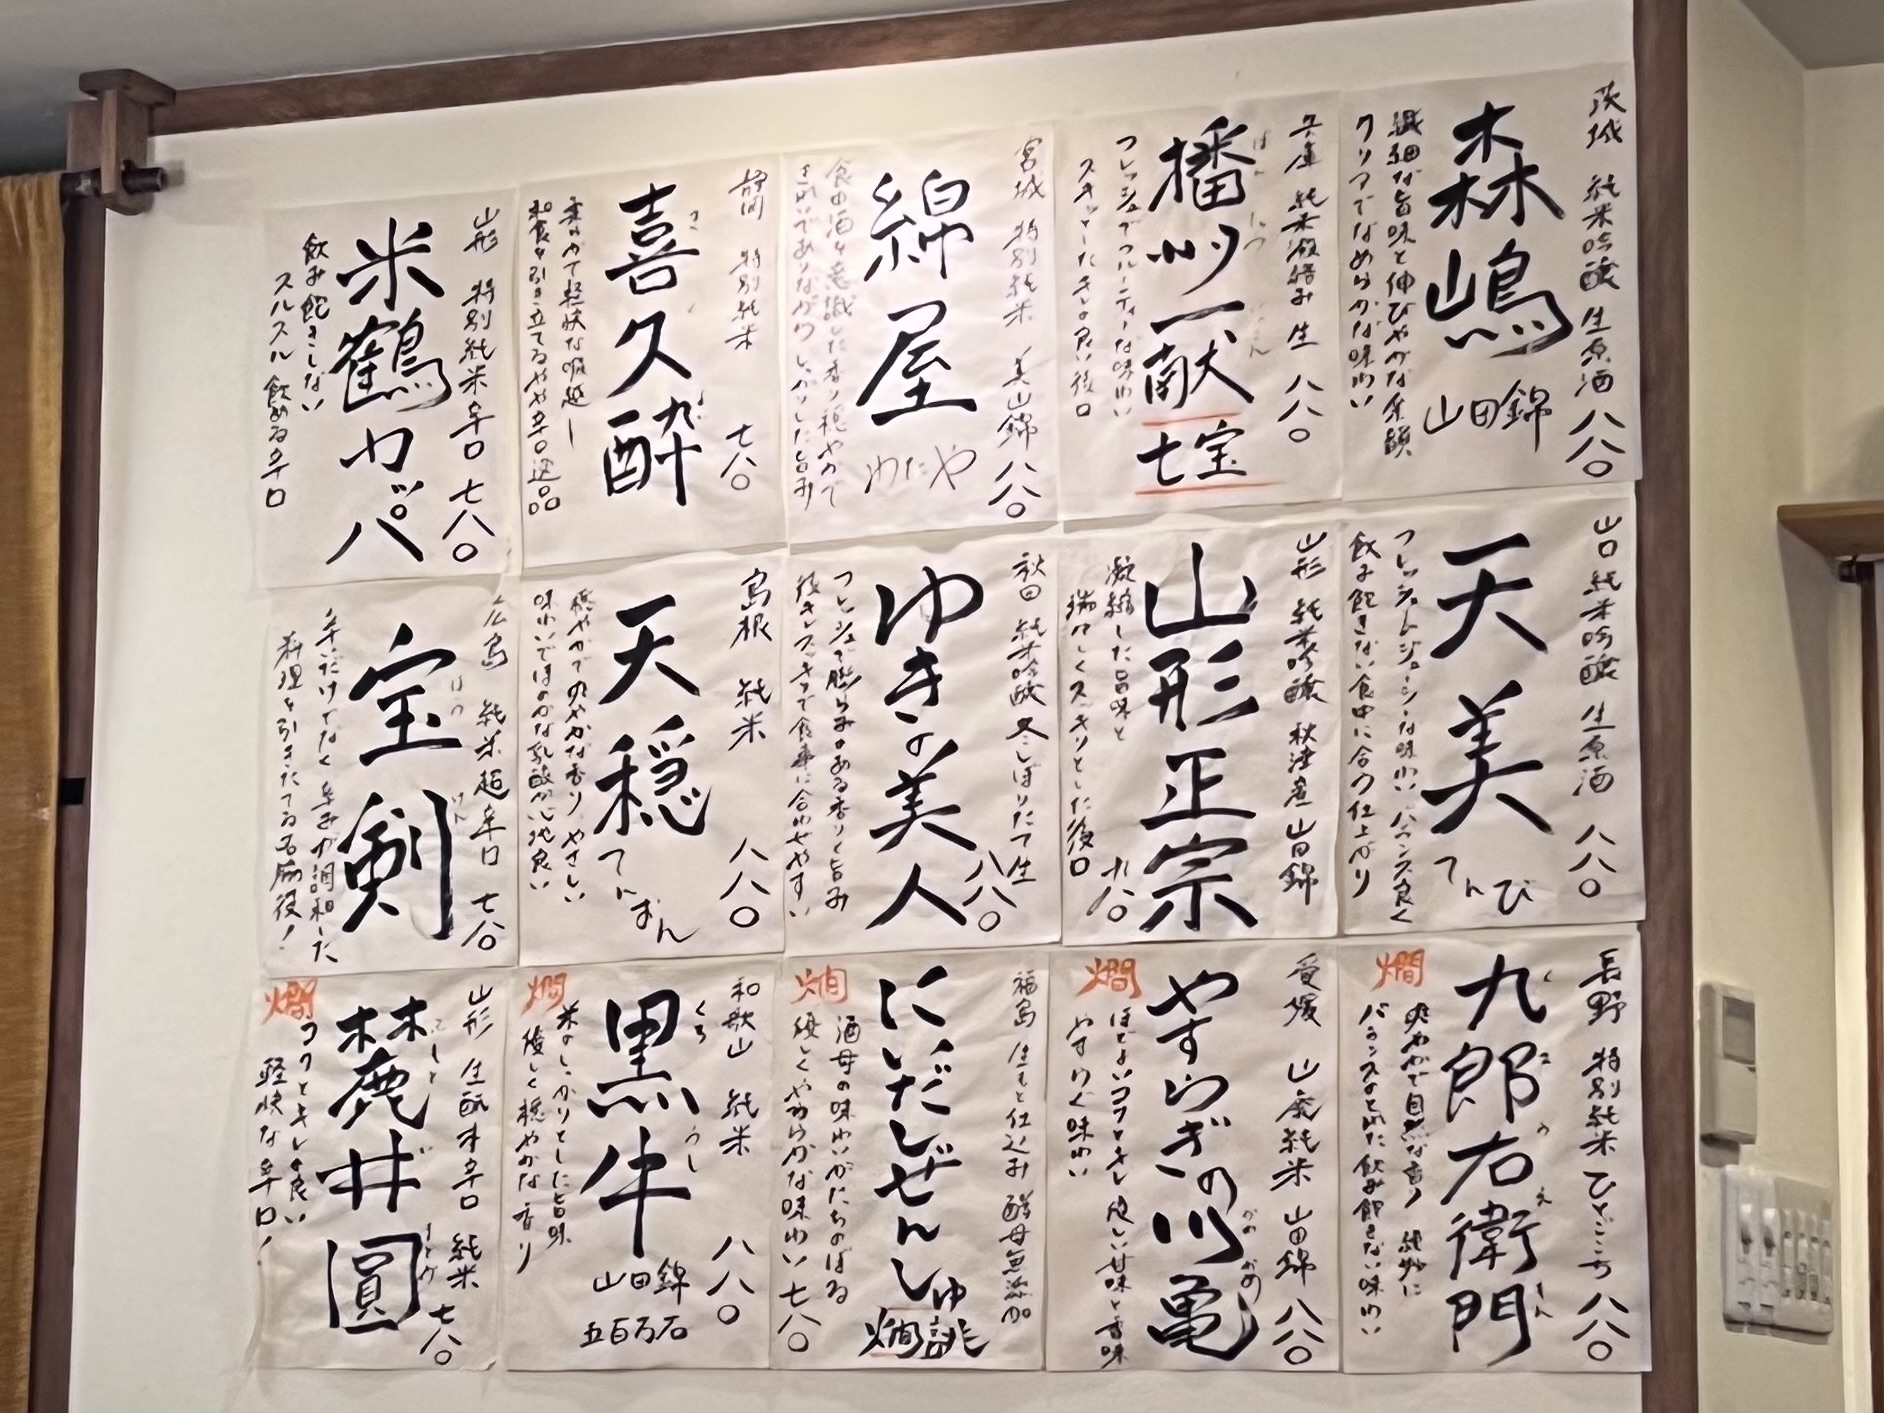 茨城 純米吟醸 生原酒 八八〇
森嶋
山田錦
繊細な旨味と伸びやかな余韻
クリアでなめらかな味わい
兵庫 純米 生 八八〇
播州一献
ばん しゅう いっこん
七宝
フレッシュでフルーティーな味わい
スキッとしたキレの良い後口
宮城 特別純米 美山錦 八八〇
綿屋
わたや
食中酒を意識した香り穏やかで
きれいでありながらしっかりした旨み
静岡 特別純米 七八〇
喜久酔
き く よい
柔らかで軽快な喉越し
和食を引き立てるやや辛口逸品
山形 特別純米辛口 七八〇
米鶴カッパ
飲み飽きしない
スルスル飲める辛口
山口 純米吟醸 生原酒 八八〇
天美
てんび
フレッシュ&ジューシーな味わいバランス良く
飲み飽きない食中に合の仕上がり
山形 純米吟醸 秋津産 山田錦
山形正宗 九八〇
凝縮した旨味と
瑞々しくスッキリとした後口
秋田 純米吟醸 冬しぼりたて生
ゆきの美人 八八〇
フレッシュで膨らみのある香りと旨み
後キレスッキリで食事に合わせやすい
島根 純米 八八〇
天穏
てんおん
穏やかで爽やかな香りやさしい
味わいでほのかな乳酸が心地良い
広島 純米超辛口 七八〇
宝剣
ほう けん
辛いだけでなく辛みが調和した
料理を引きたてる名脇役!
長野 特別純米 ひとごこち 八八〇
九郎右衛門
く ろ う え もん
燗
爽やかで自然な香り 絶妙に
バランスのとれた飲み飽きない味わい
愛媛 山廃純米 山田錦 八八〇
やすらぎの川亀
かわ かめ
燗
ほどよいコクとキレ 優しい甘味と香味
やすらぐ味わい
福島 生もと仕込み 酵母無添加
にいだしぜんしゅ
燗誂
燗
酒母の味わいがたちのぼる
優しくやわらかな味わい 七八〇
和歌山 純米 八八〇
黒牛
くろ うし
山田錦
五百万石
燗
米のしっかりとした旨味
優しく穏やかな香り
山形 生酛本辛口 純米 七八〇
麓井 圓
ふもと い まどか
燗
コクとキレ良い
軽快な辛口!